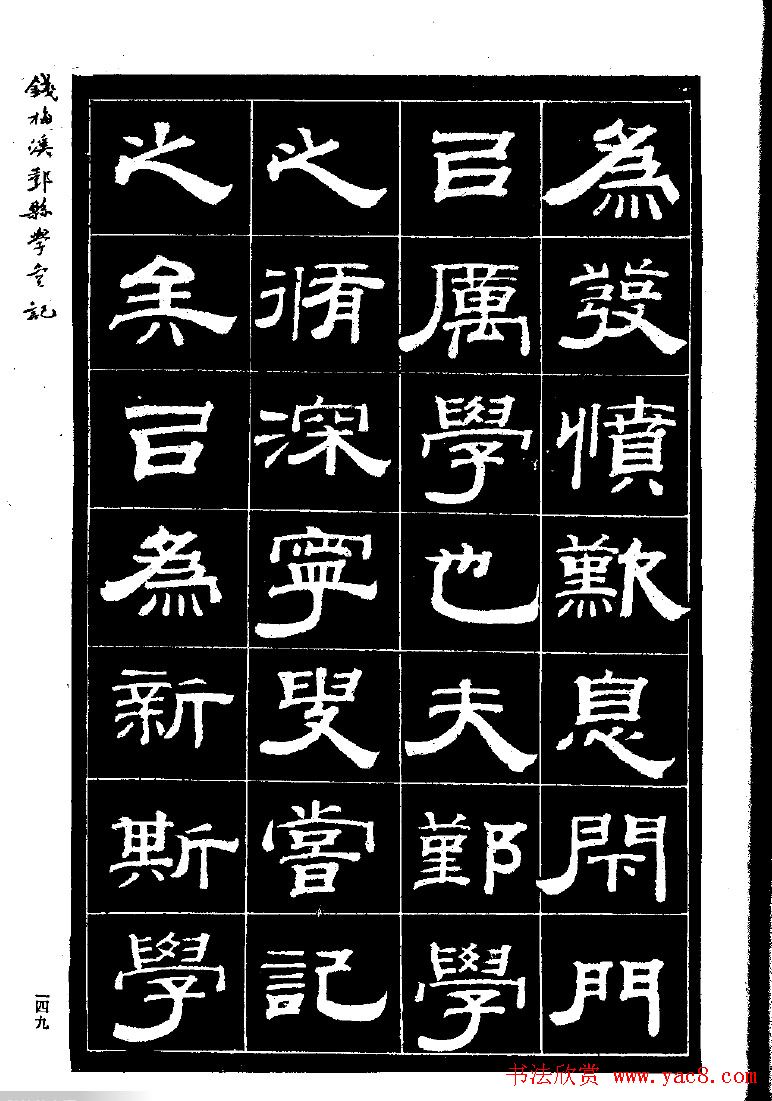 為發憤歎息閇門
㠯厲學也夫鄞學
之脩深寧叟嘗記
之矣㠯為新斯學
錢梅溪鄞縣学宮記
一四九
书法欣赏 www.yac8.com